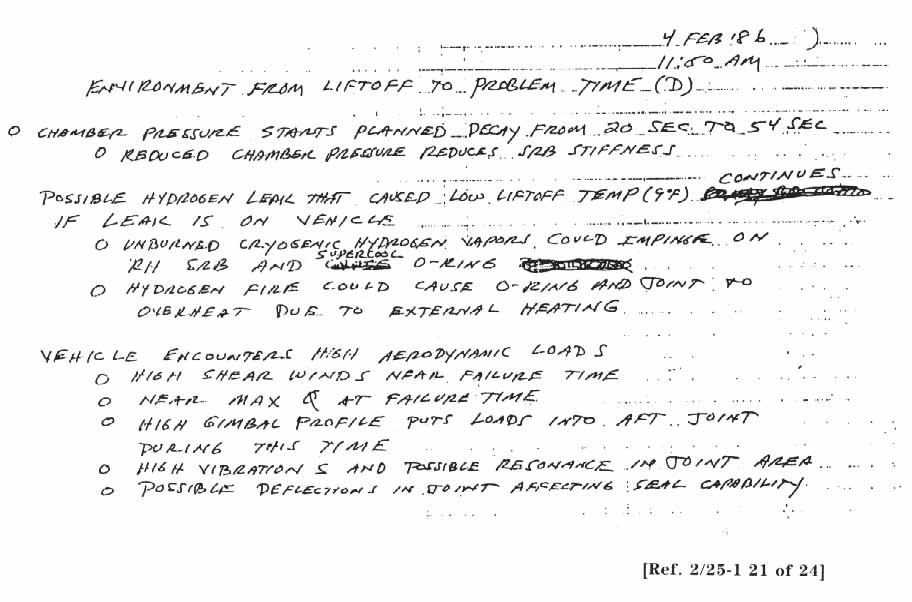 4 FEB '86
11:50 AM
ENVIRONMENT FROM LIFTOFF TO PROBLEM TIME (D)
O CHAMBER PRESSURE STARTS PLANNED DECAY FROM 20 SEC TO 54 SEC
O REDUCED CHAMBER PRESSURE REDUCES SRB STIFFNESS
CONTINUES
POSSIBLE HYDROGEN LEAK THAT CAUSED LOW LIFTOFF TEMP (9°F)
IF LEAK IS ON VEHICLE
O UNBURNED CRYOGENIC HYDROGEN VAPORS COULD IMPINGE ON
RH SRB AND SUPERCOOL O-RING
O HYDROGEN FIRE COULD CAUSE O-RING AND JOINT TO
OVERHEAT DUE TO EXTERNAL HEATING
VEHICLE ENCOUNTERS HIGH AERODYNAMIC LOADS
O HIGH SHEAR WINDS NEAR FAILURE TIME
O NEAR MAX Q AT FAILURE TIME
O HIGH GIMBAL PROFILE PUTS LOADS INTO AFT JOINT
DURING THIS TIME
O HIGH VIBRATIONS AND POSSIBLE RESONANCE IN JOINT AREA
O POSSIBLE DEFLECTIONS IN JOINT AFFECTING SEAL CAPABILITY
[Ref. 2/25-1 21 of 24]